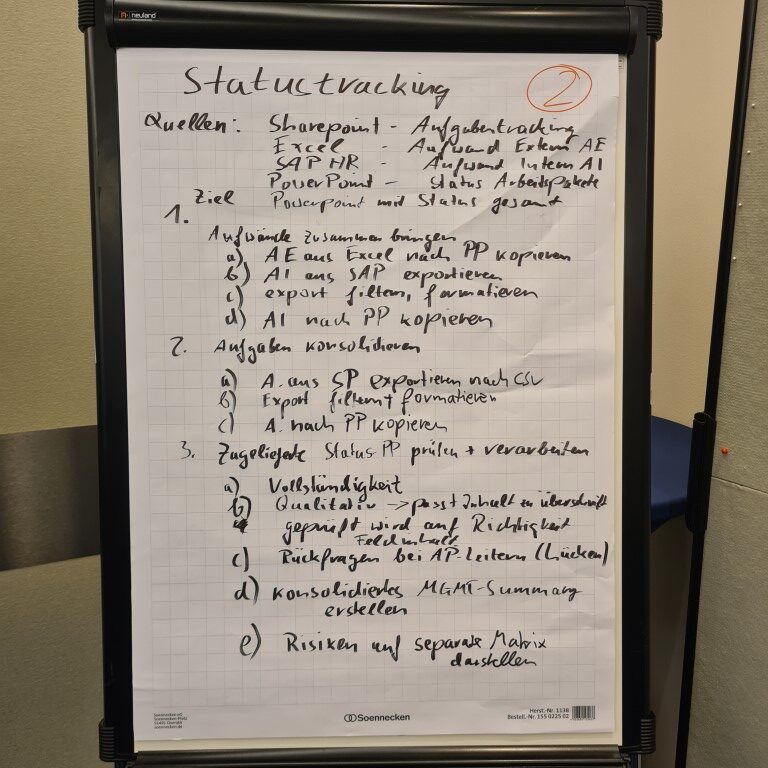 neuland
Statustracking
2
Quellen: Sharepoint - Aufgabentracking
Excel - Aufwand Extern AE
SAP HR - Aufwand Intern AI
PowerPoint - Status Arbeitspakete
Ziel Powerpoint mit Status gesamt
1.
Aufwände zusammen bringen
a) AE aus Excel nach PP kopieren
b) AI aus SAP exportieren
c) export filtern, formatieren
d) AI nach PP kopieren
2. Aufgaben konsolidieren
a) A. aus SP exportieren nach CSV
b) Export filtern + formatieren
c) A. nach PP kopieren
3. Zugelieferte Status-PP prüfen + verarbeiten
a) Vollständigkeit
b) Qualitativ -> passt Inhalt zu überschrift
geprüft wird auf Richtigkeit
Feldinhalt
c) Rückfragen bei AP-Leitern (Lücken)
d) konsolidiertes MGMT-Summary
erstellen
e) Risiken auf separate Matrix
darstellen
Soennecken eG
Soennecken-Platz
51491 Overath
soennecken.de
Soennecken
Herst.-Nr. 1138
Bestell.-Nr. 155 0225 02